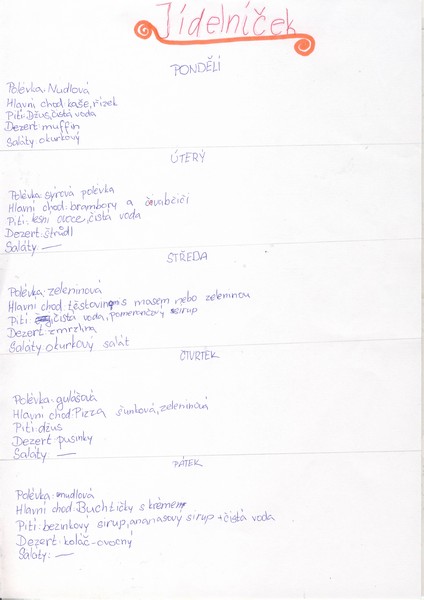 Jídelníček
PONDĚLÍ
Polévka: Nudlová
Hlavní chod: kaše, řízek
Pití: Džus, čistá voda
Dezert: muffin
Saláty: okurkový
ÚTERÝ
Polévka: sýrová polévka
Hlavní chod: brambory a čivabčiči
Pití: lesní ovoce, čistá voda
Dezert: štrúdl
Saláty: —
STŘEDA
Polévka: zeleninová
Hlavní chod těstoviny s masem nebo zeleninou
Pití: čistá voda, pomerančový sirup
Dezert: zmrzlina
Saláty okurkový salát
ČTVRTEK
Polévka: gulášová
Hlavní chod: Pizza šunková, zeleninová
Pití: džus
Dezert: pusinky
Saláty: —
PÁTEK
Polévka: nudlová
Hlavní chod: Buchtičky s krémem
Pití: bezinkový sirup, ananasový sirup + čistá voda
Dezert: koláč - ovocný
Saláty: —